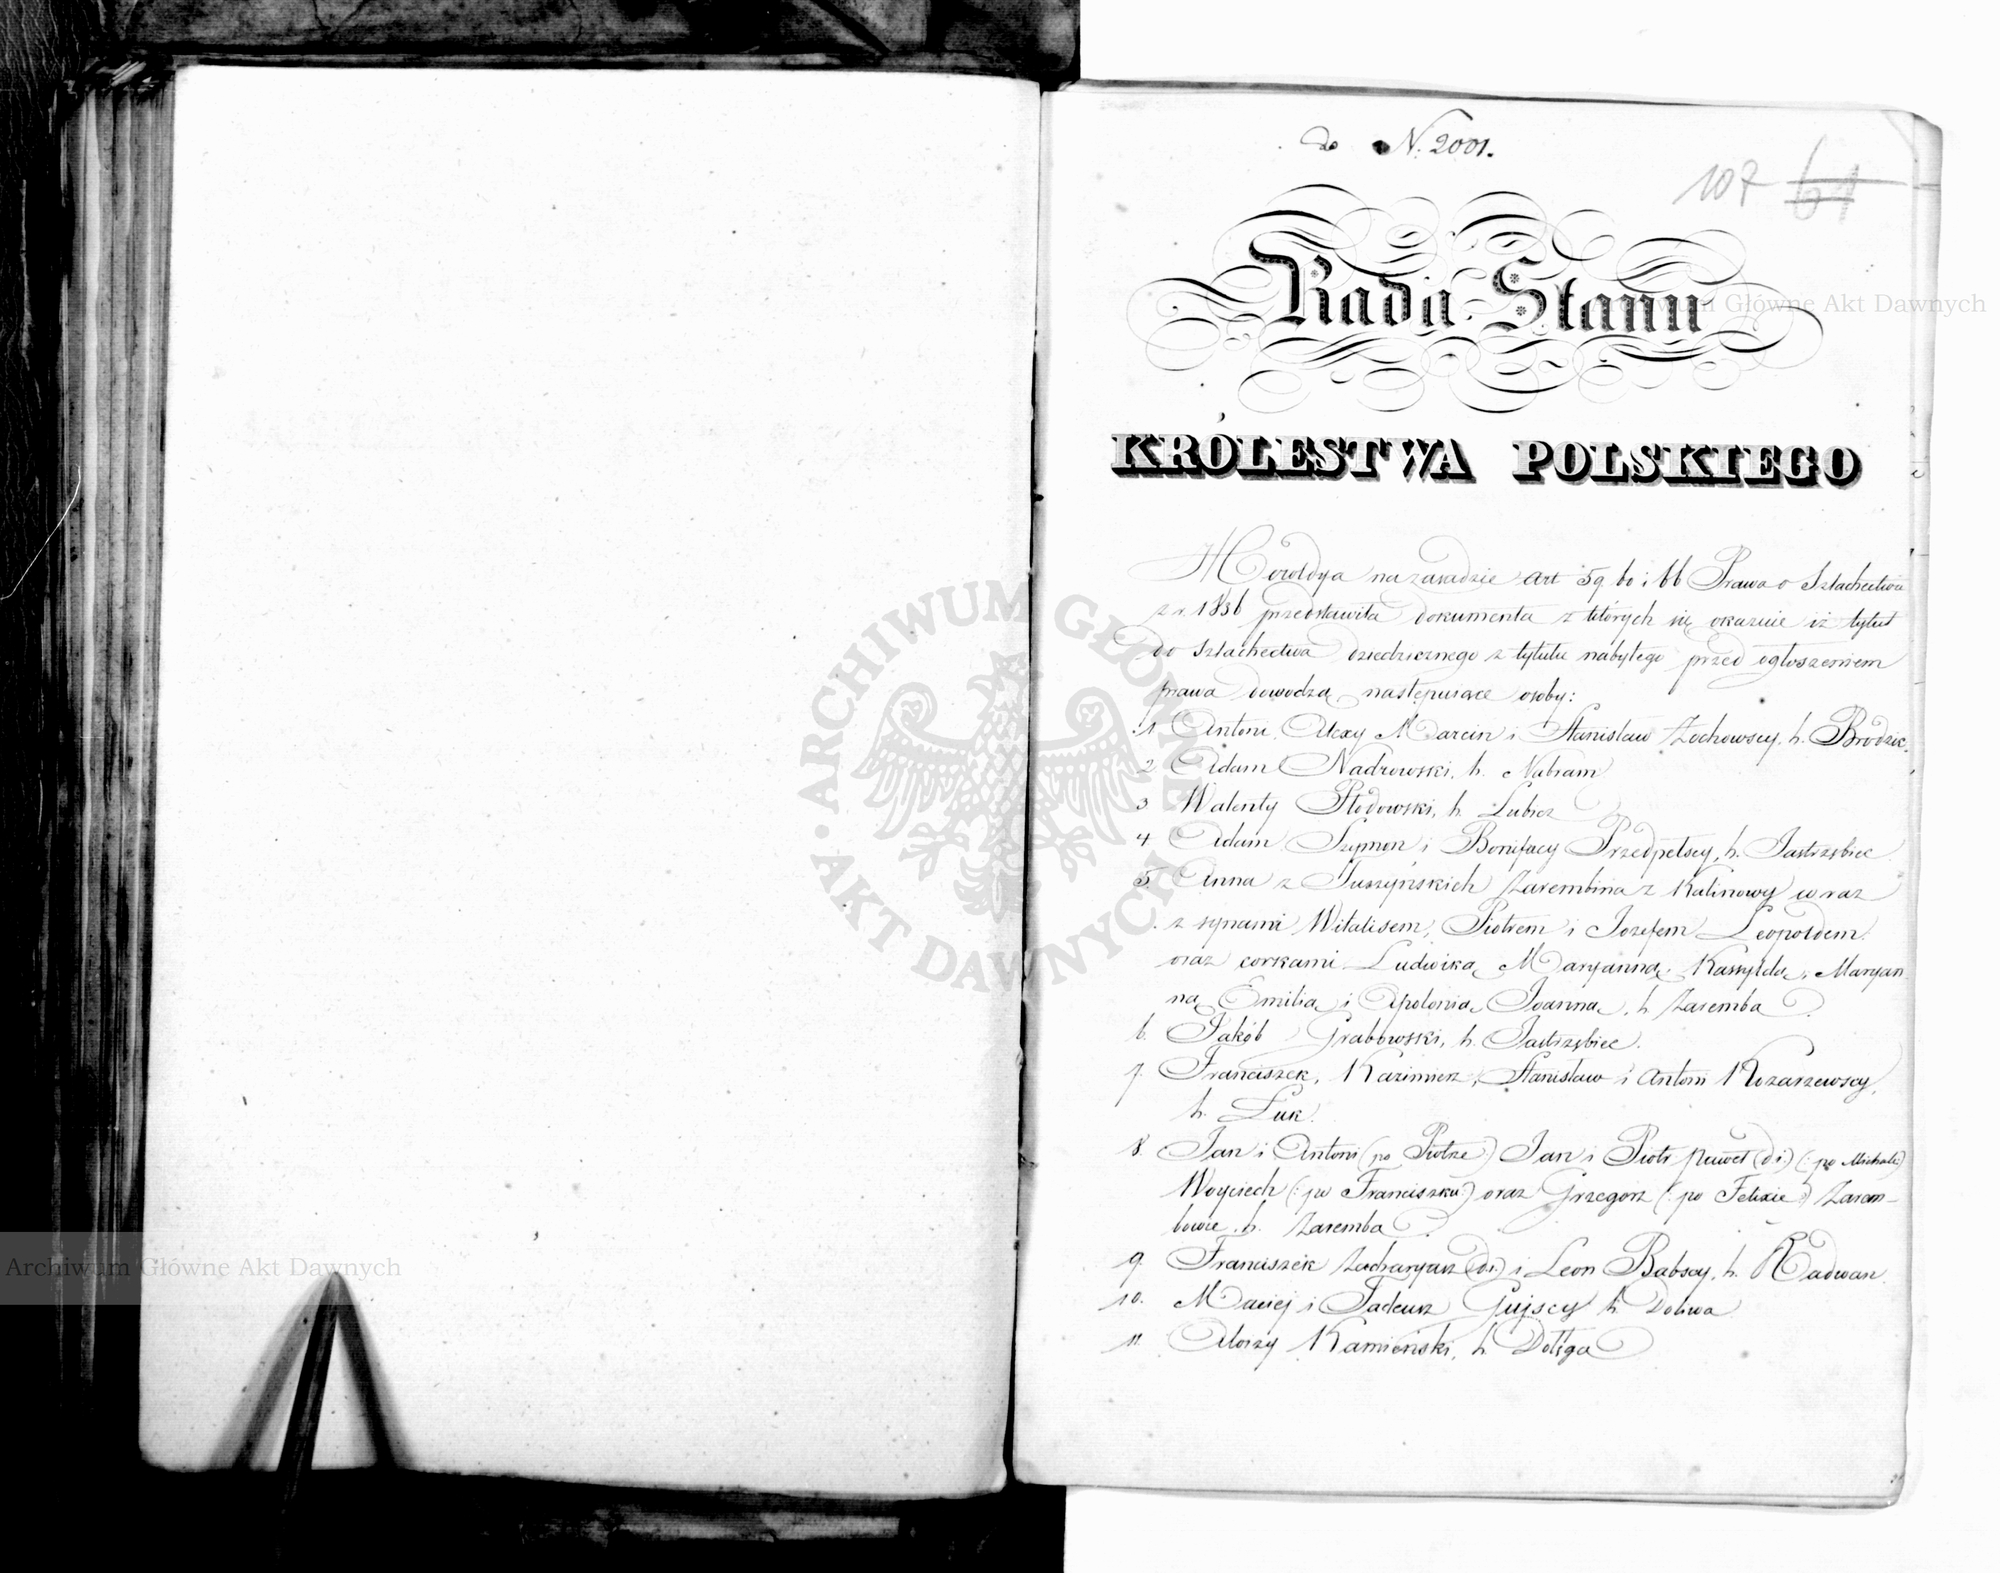 do N. 2001.
107 61
Rada Stanu
KRÓLESTWA POLSKIEGO
Heroldya na zasadzie art 59 60 i 66 Prawa o Szlachectwie
z r. 1836 przedstawiła dokumenta z których się okazuie iż tytuł
do szlachectwa dziedzicznego z tytułu nabytego przed ogłoszeniem
prawa dowodzą następuiące osoby:
1 Antoni, Alexy Marcin i Stanisław Żochowscy, h. Brodzic.
2 Adam Nadrowski, h. Nabram
3 Walenty Płodowski, h. Lubicz
4 Adam Szymon i Bonifacy Przedpełscy, h. Jastrzębiec.
5. Anna z Tuszyńskich Zarembina z Kalinowy wraz
z synami Witalisem, Piotrem i Jozefem Leopoldem
oraz corkami Ludwiką, Maryanną, Kassyldą, Maryan
ną Emilią i Apolonią Joanną, h Zaremba
6. Jakób Grabowski, h. Jastrzębiec.
7. Franciszek, Kazimierz, Stanisław i Antoni Kozarzewscy,
h. Łuk.
8. Jan i Antoni (po Piotrze) Jan i Piotr Paweł (d i.) (: po Michale)
Woyciech (: po Franciszku:) oraz Grzegorz (: po Felixie :) Zarem-
bowie, h. Zaremba
9. Franciszek Zacharyasz (d i.) i Leon Babscy, h. Radwan.
10. Maciej i Tadeusz Gujscy h. Doliwa
11. Alojzy Kamieński, h. Dołęga
Archiwum Główne Akt Dawnych
ARCHIWUM GŁÓWNE • AKT DAWNYCH
Archiwum Główne Akt Dawnych